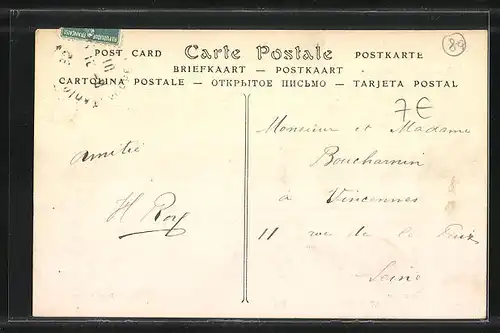 89
POST CARD Carte Postale POSTKARTE
BRIEFKAART — POSTKAART
CARTOLINA POSTALE — ОТКРЫТОЕ ПИСЬМО — TARJETA POSTAL
REPUBLIQUE FRANÇAISE
7€
amitié
H Roy
Monsieur et Madame
Boucharnin
à Vincennes
11 rue de la Paix
Seine